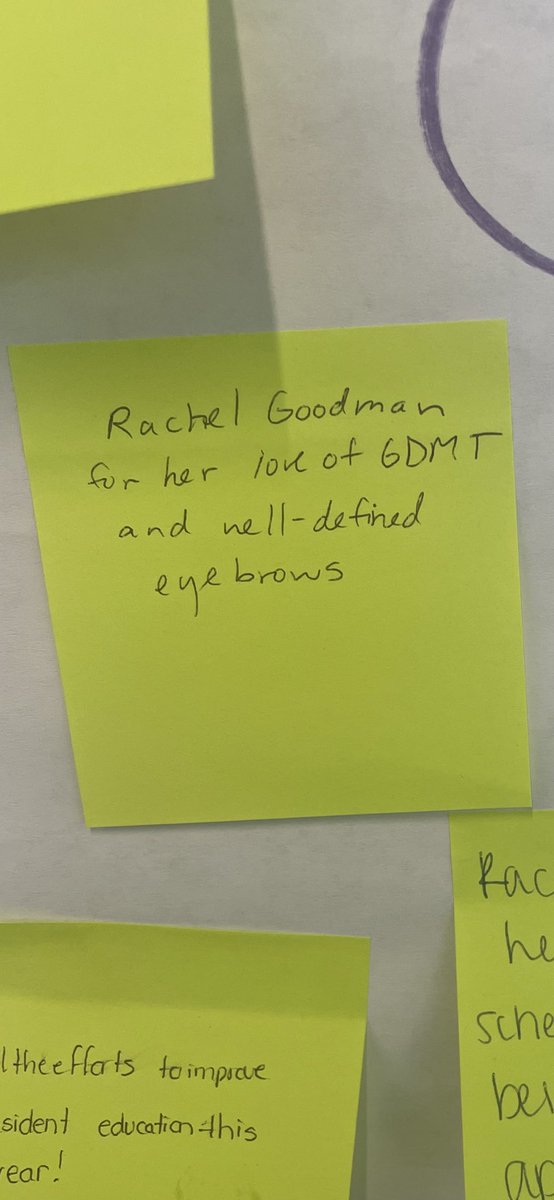 Rachel Goodman
for her love of GDMT
and well-defined
eyebrows
l the efforts to improve
sident education this
year!
Rac
he
sche
bei
ar